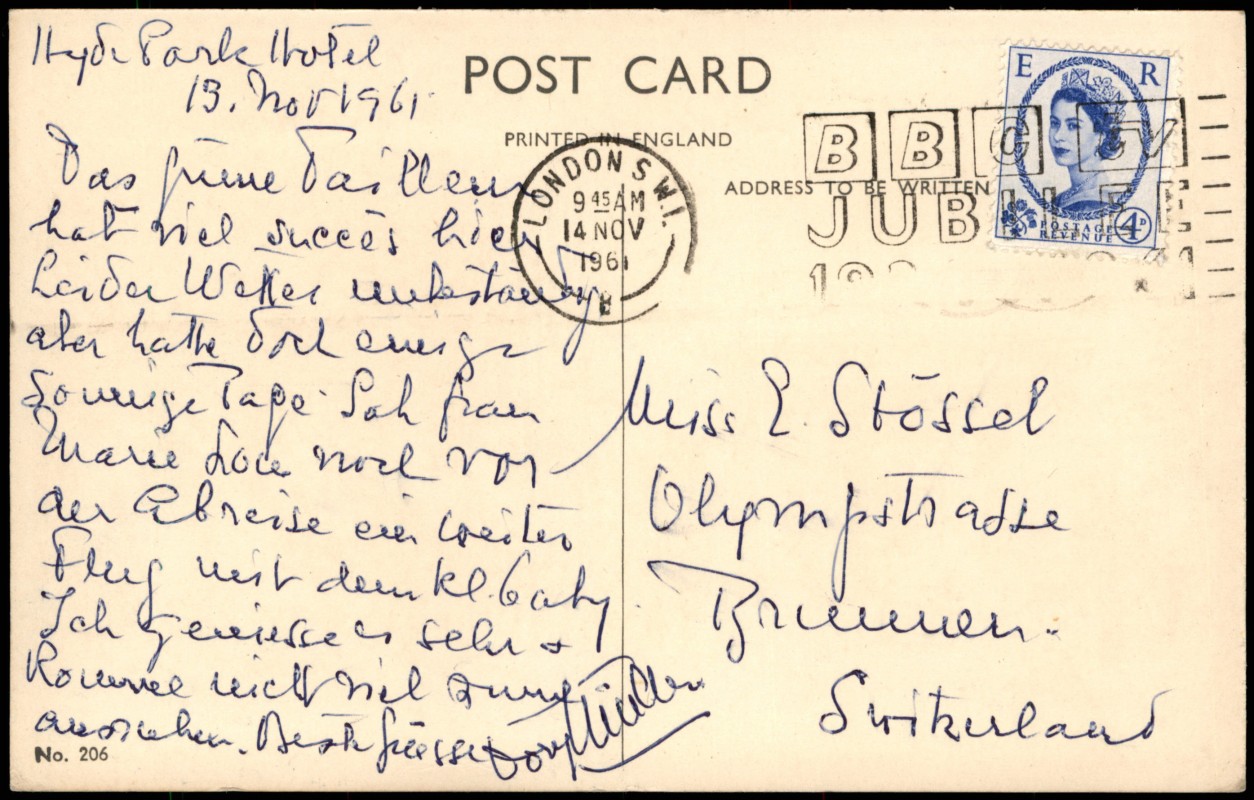 Hyde Park Hotel
13. Nov 1961
POST CARD
PRINTED IN ENGLAND
ADDRESS TO BE WRITTEN
LONDON S.W.1.
9 45 AM
14 NOV
1961
E
BBC TV
JUBILEE
E R
POSTAGE
REVENUE
4D
Das grüne Tailleur
hat viel succès hier
Leider Wetter unbeständig
aber hatte doch einige
sonnige Tage. Sah
Marie Lou noch vor
der Abreise ein
Flug mit dem kl. Baby.
Ich geniesse es sehr &
komme nicht viel zum
ausruhen. Beste Grüsse
Miss E. Stössel
Olympstrasse
Brunnen.
Switzerland
No. 206